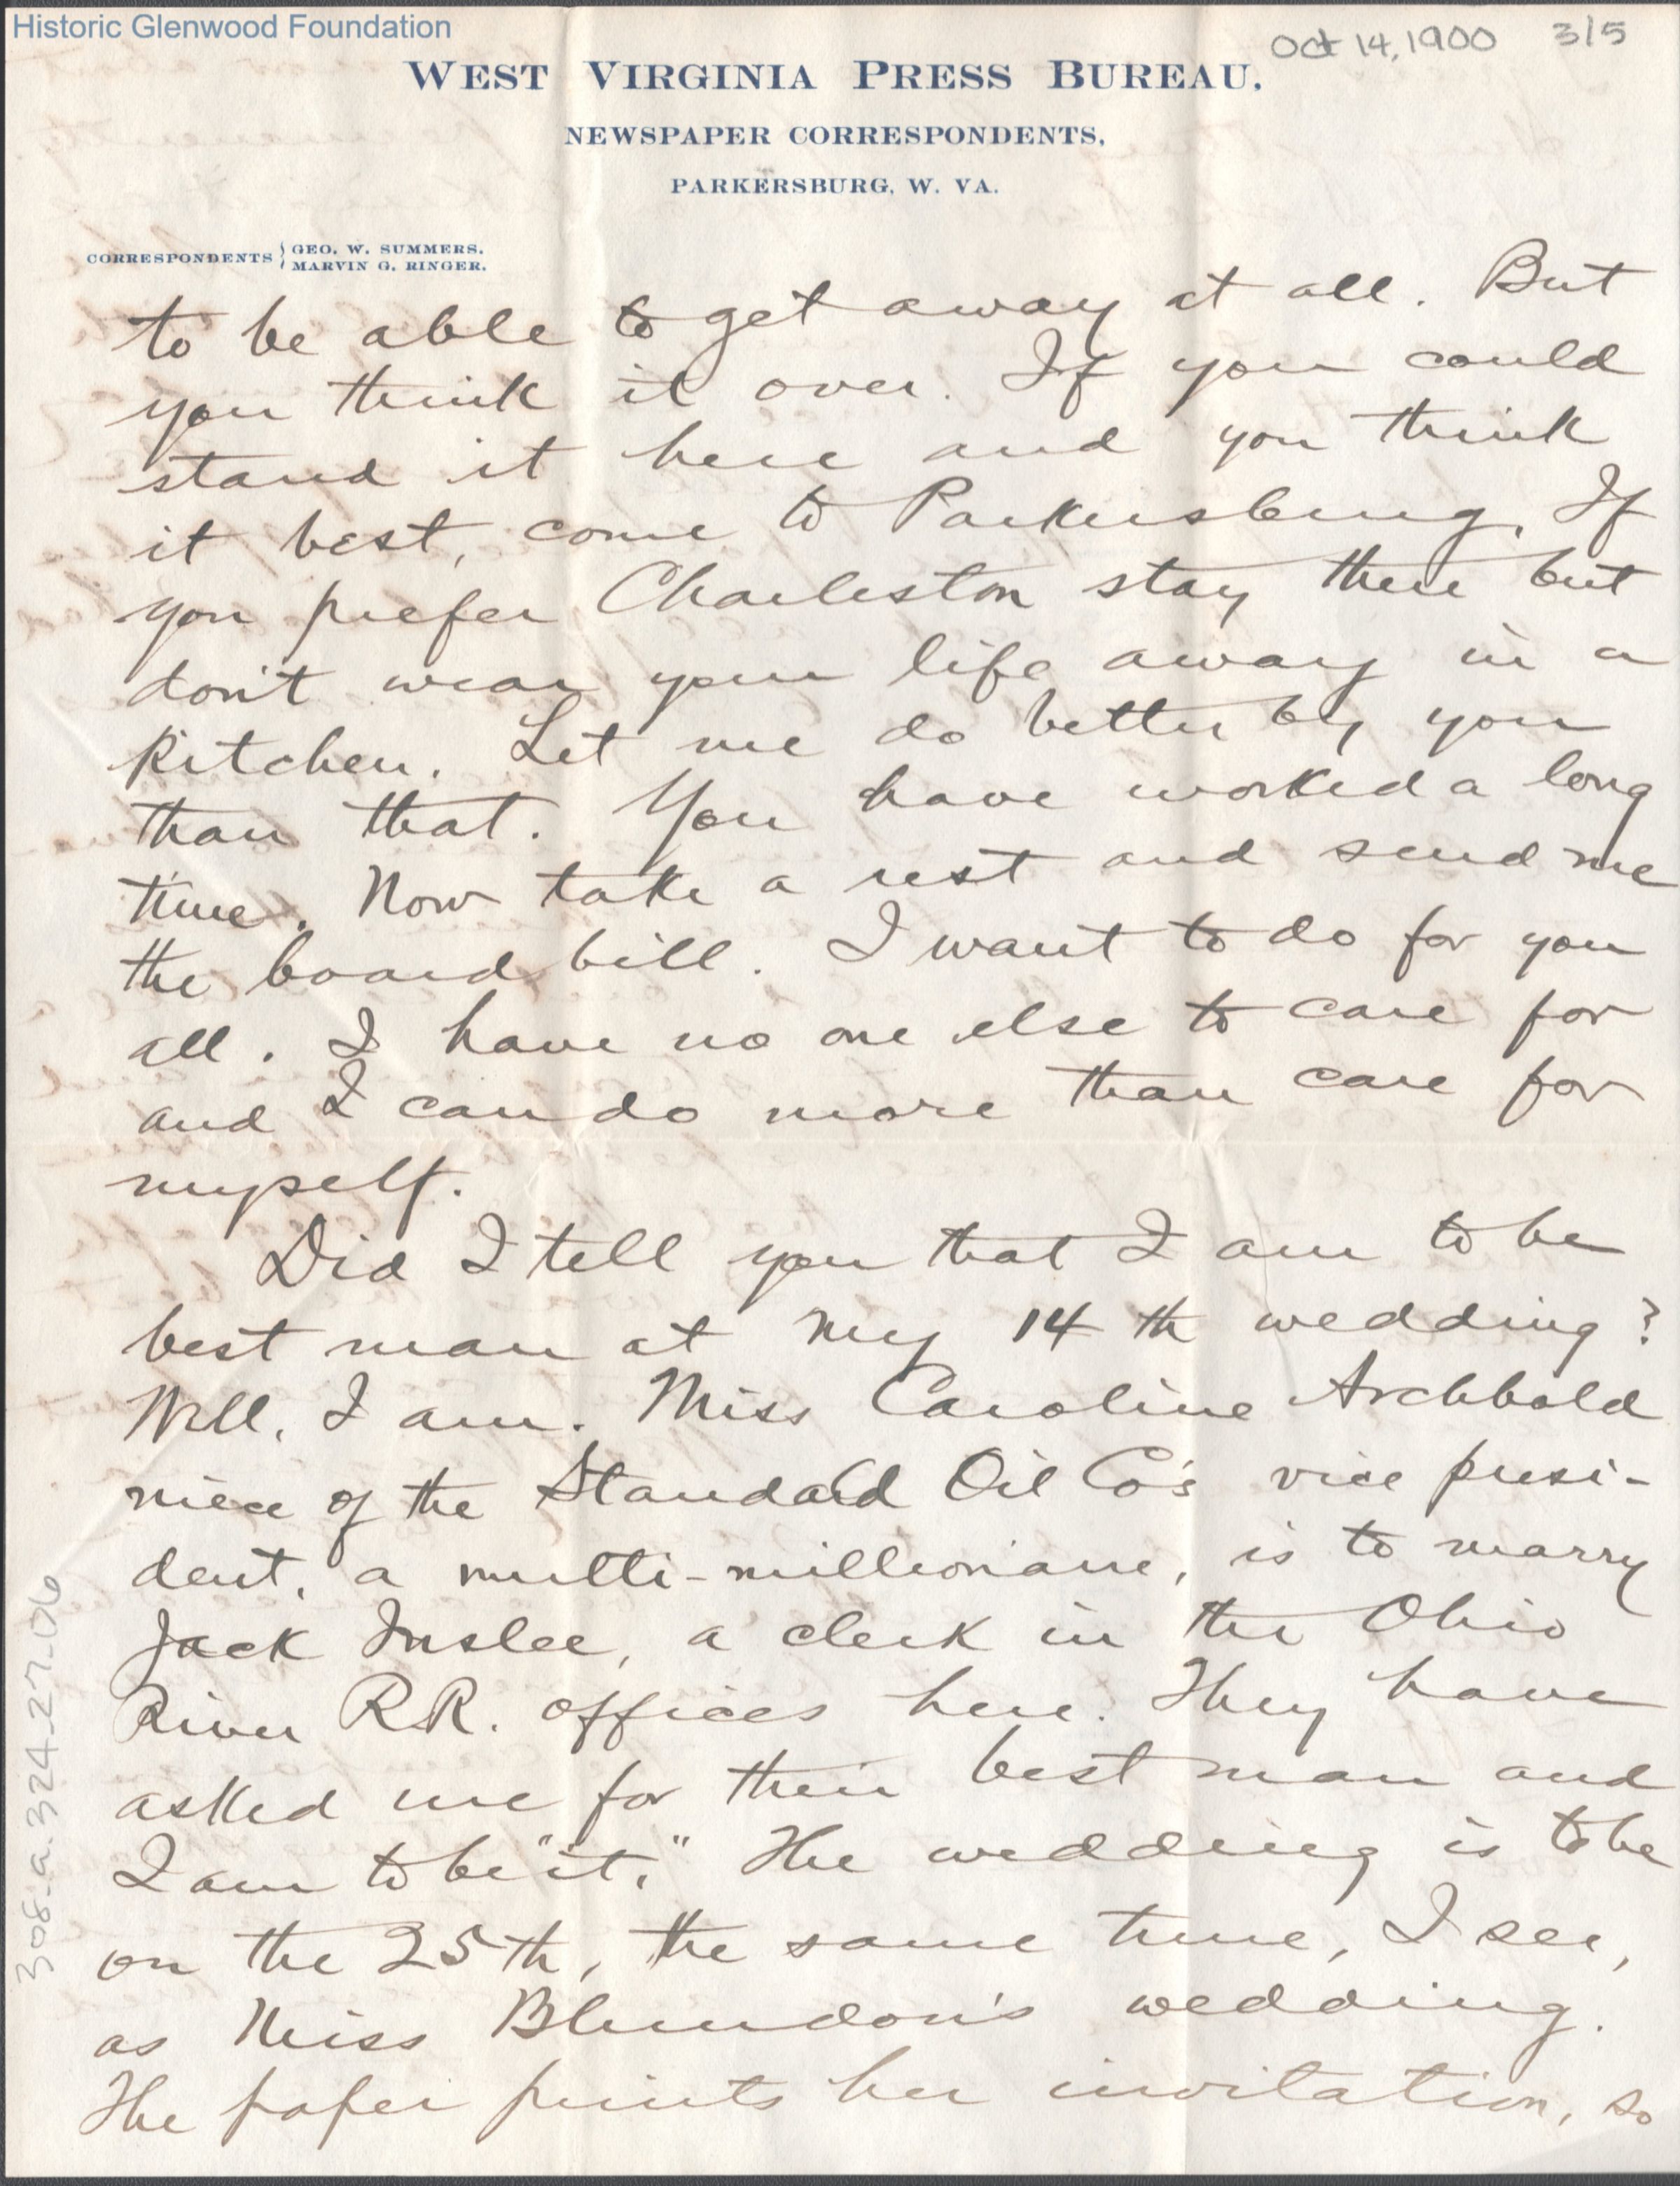 Historic Glenwood Foundation
Oct 14, 1900 3/5
WEST VIRGINIA PRESS BUREAU.
NEWSPAPER CORRESPONDENTS,
PARKERSBURG, W. VA.
CORRESPONDENTS } GEO. W. SUMMERS.
MARVIN G. RINGER.
to be able to get away at all. But
you think it over. If you could
stand it here and you think
it best, come to Parkersburg. If
you prefer Charleston stay there but
don't wear your life away in a
kitchen. Let me do better by you
than that. You have worked a long
time. Now take a rest and send me
the board bill. I want to do for you
all. I have no one else to care for
and I can do more than care for
myself.
Did I tell you that I am to be
best man at my 14th wedding?
Well, I am. Miss Caroline Archbold
niece of the Standard Oil Co's vice presi-
dent, a multi-millionaire, is to marry
Jack Inslee, a clerk in the Ohio
River R.R. offices here. They have
asked me for their best man and
I am to be "it." The wedding is to be
on the 25th, the same time, I see,
as Miss Blundon's wedding.
The paper prints her invitation, so
308.a.324-27-06